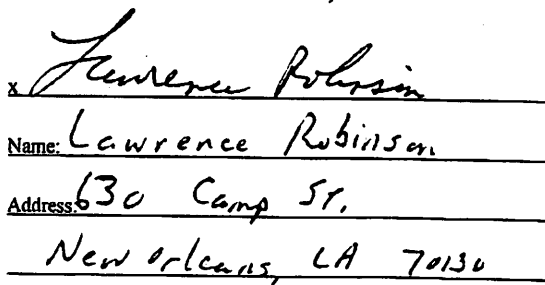 x Lawrence Robinson
Name: Lawrence Robinson
Address: 630 Camp St.
New Orleans, LA 70130